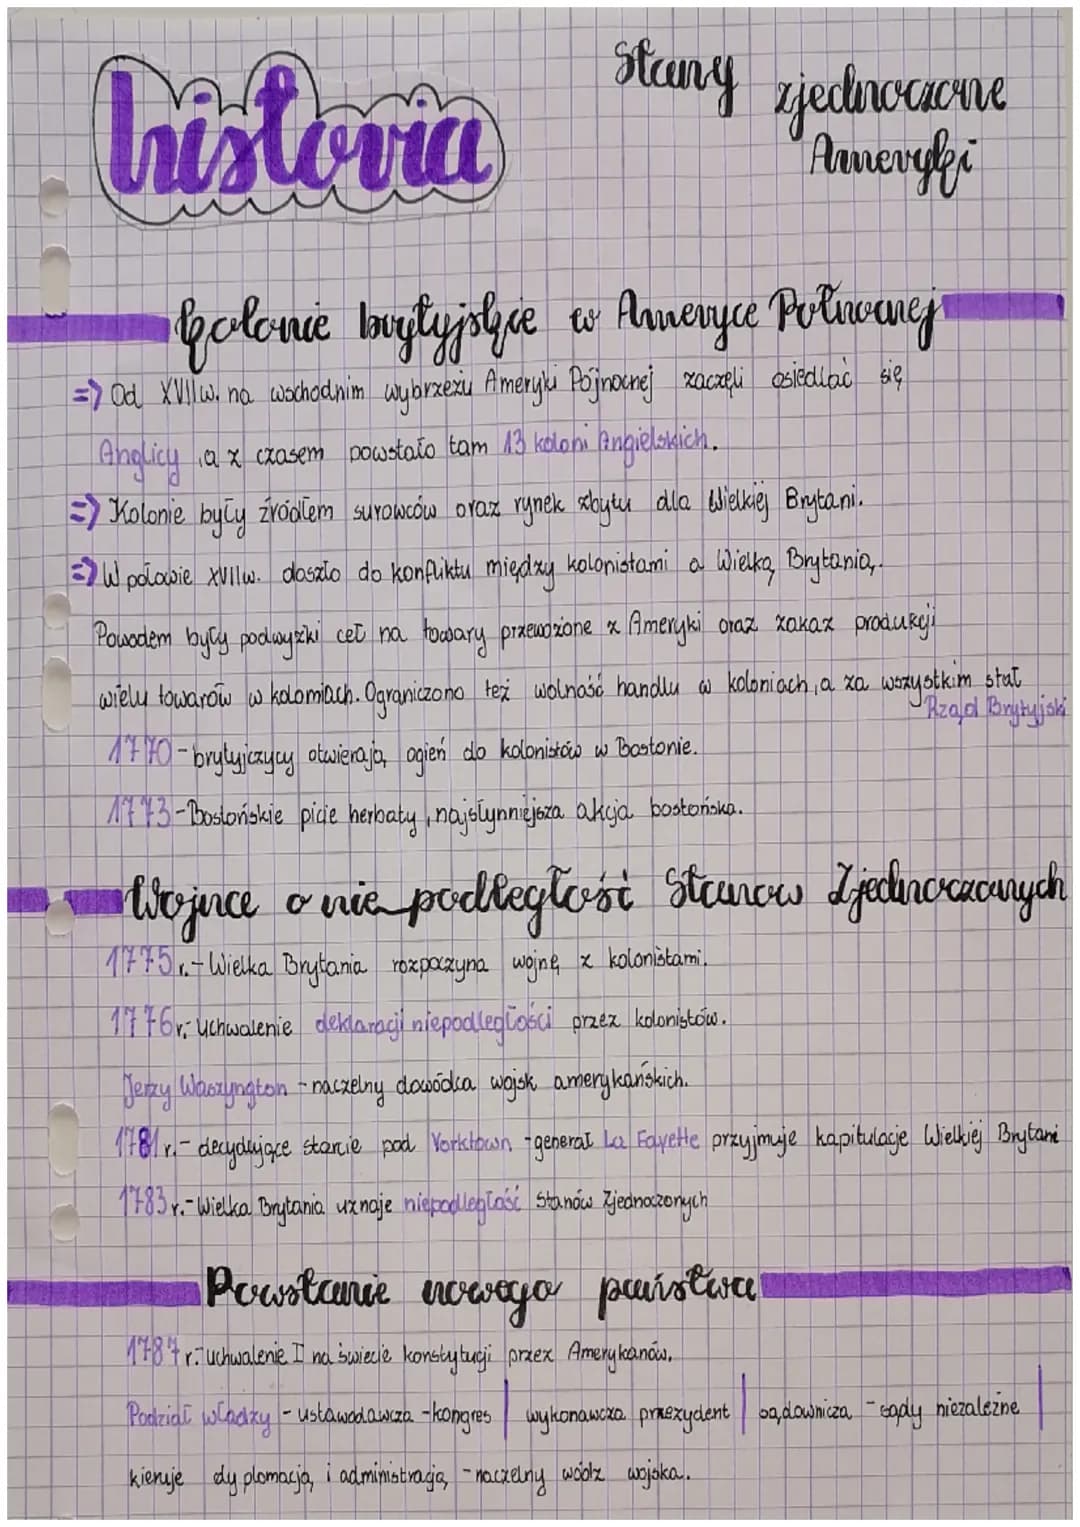 historia
Stany zjednoczone
Ameryki
kolonie brytyjskie w Ameryce Północnej
=> Od XVII w. na wschodnim wybrzeżu Ameryki Pójnocnej zaczęli osiedlać się
Anglicy , a z czasem powstało tam 13 koloni Angielskich.
=> Kolonie były źródłem surowców oraz rynek zbytu dla Wielkiej Brytani.
=> W połowie XVIIw. doszło do konfliktu między kolonistami a Wielką Brytanią.
Powodem były podwyżki ceł na towary przewożone z Ameryki oraz zakaz produkcji
wielu towarów w kolomiach. Ograniczono też wolność handlu w koloniach, a za wszystkim stał
Rząd Brytyjski
1770 - brytyjczycy otwierają ogień do kolonistów w Bostonie.
1773 - Bostońskie picie herbaty, najsłynniejsza akcja bostońska.
Wojnce o nie podległość Stanow Zjednoczonych
1775 r. - Wielka Brytania rozpoczyna wojnę z kolonistami.
1776 r. - Uchwalenie deklaracji niepodległości przez kolonistów.
Jerzy Waszyngton - naczelny dowódca wojsk amerykańskich.
1781 r. - decydujące starcie pod Yorktown - generał La Fayette przyjmuje kapitulacje Wielkiej Brytani
1783 r. - Wielka Brytania uznaje niepodległość Stanów Zjednoczonych
Powstanie nowego państwa
1787 r. - uchwalenie I na świecie konstytucji przez Amerykanów.
Podział władzy - ustawodawcza - kongres | wykonawcza prezydent | sądownicza - sądy niezależne |
kieruje dyplomacją i administracją - naczelny wódz wojska.